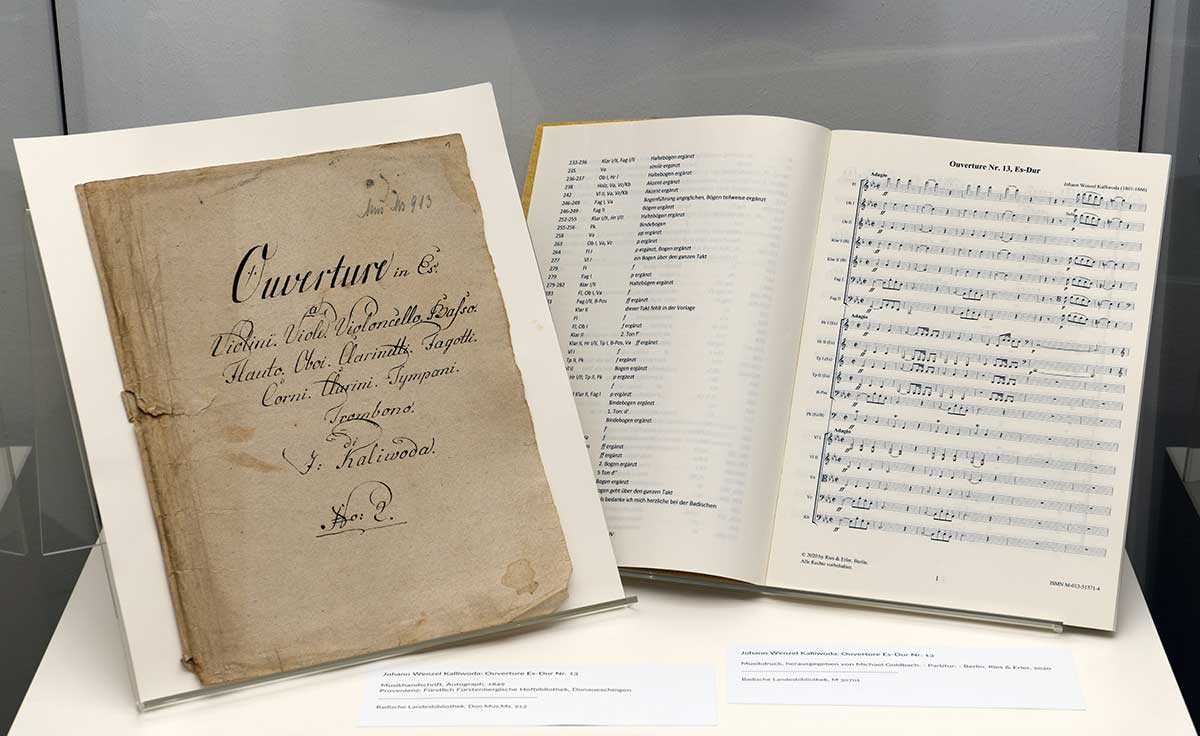 Mus Ms 913
Ouverture in Es.
a
Violini. Viole. Violoncello. Basso.
Flauto. Oboi. Clarinetti. Fagotti.
Corni. Clarini. Tympani.
Trombono.
di
J: Kaliwoda.
No: 2.
233-236 Klar I/II, Fag I/II Haltebögen ergänzt
235 Va simile ergänzt
236-237 Ob I, Hr I Haltebogen ergänzt
238 Holz, Va, Vc/Kb Akzent ergänzt
242 Vl II, Va, Vc/Kb Akzent ergänzt
246-249 Fag I, Va Bogenführung angeglichen, Bögen teilweise ergänzt
246-249 Fag II Bögen ergänzt
252-255 Klar I/II, Hr I/II Haltebögen ergänzt
255-256 Pk Bindebogen
258 Va pp ergänzt
263 Ob I, Va, Vc p ergänzt
264 Fl I p ergänzt, Bogen ergänzt
277 Vl I ein Bogen über den ganzen Takt
279 Fl f
279 Fag I p ergänzt
279-282 Klar I/II Haltebögen ergänzt
Fl, Ob I, Va f
Fag I/II, B-Pos ff ergänzt
Klar II dieser Takt fehlt in der Vorlage
Fl f
Fl, Ob I f ergänzt
Klar II 2. Ton f'
Klar II, Hr I/II, Tp I, B-Pos, Va ff ergänzt
Vl I f
Tp II, Pk f ergänzt
Bogen ergänzt
Hr I/II, Tp II, Pk p ergänzt
f
Klar II, Fag I p ergänzt
Bindebogen ergänzt
1. Ton: d'
Bindebogen ergänzt
f
f
ff ergänzt
ff ergänzt
2. Bogen ergänzt
Ton d''
Bogen ergänzt
Bogen geht über den ganzen Takt
bedanke ich mich herzliche bei der Badischen
IV
Ouverture Nr. 13, Es-Dur
Johann Wenzel Kalliwoda (1801-1866)
Adagio
Fl
Ob I
Ob II
Klar I (B)
Klar II (B)
Fag I
Fag II
Adagio
Hr I (Es)
Hr II (Es)
Tp I (Es)
Tp II (Es)
B-Pos
Pk (Es/B)
Adagio
Vl I
Vl II
Va
Vc
Kb
© 2020 by Ries & Erler, Berlin.
Alle Rechte vorbehalten.
1
ISMN M-013-51571-4
Johann Wenzel Kalliwoda: Ouverture Es-Dur Nr. 13
Musikhandschrift, Autograph, 1842
Provenienz: Fürstlich Fürstenbergische Hofbibliothek, Donaueschingen
Badische Landesbibliothek, Don Mus.Ms. 913
Johann Wenzel Kalliwoda: Ouverture Es-Dur Nr. 13
Musikdruck, herausgegeben von Michael Goldbach. - Partitur. - Berlin: Ries & Erler, 2020
Badische Landesbibliothek, M 30701